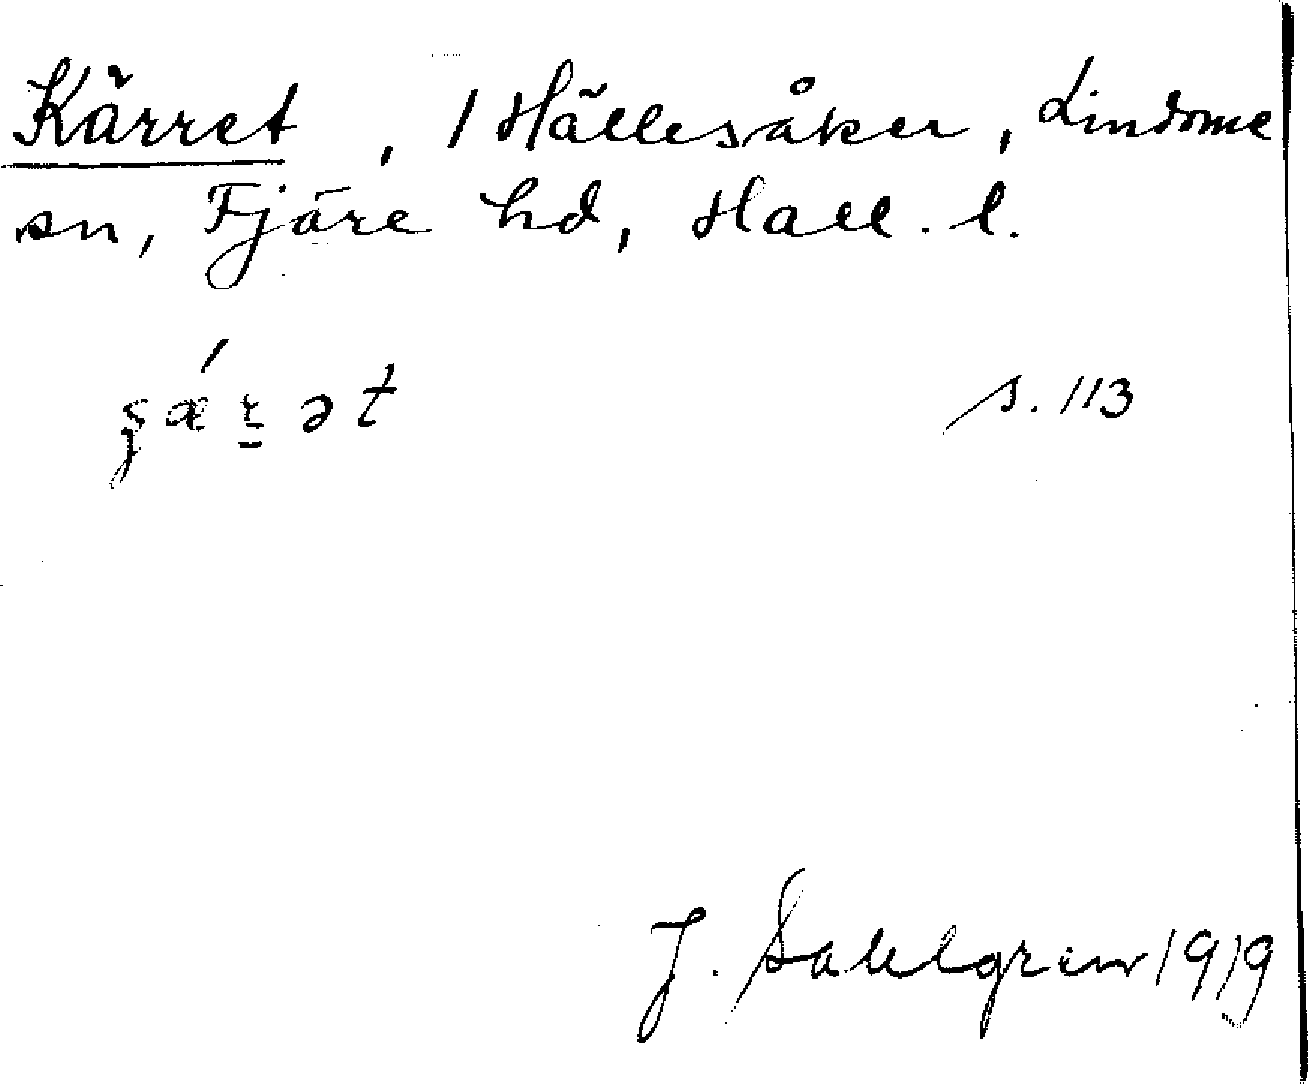 Kärret, 1 Hällesåker, Lindome
sn, Fjäre hd, Hall. l.
ʂǽṟət s. 113
J. Sahlgren 1919